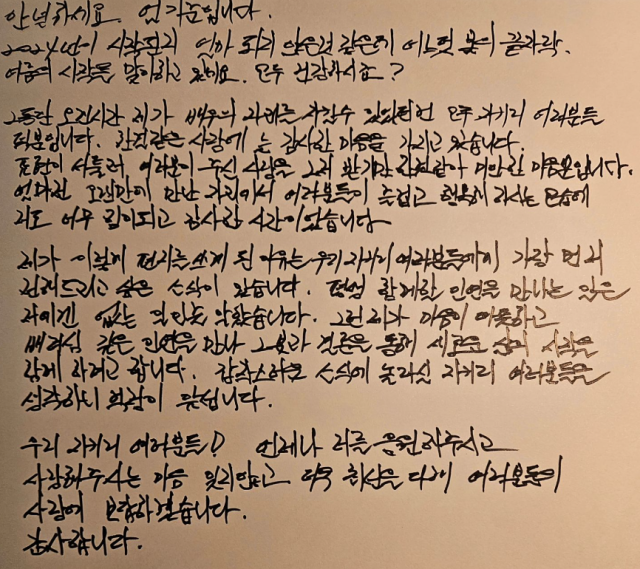 안녕하세요. 엄기준입니다.
2024년이 시작된지 얼마 되지 않은것 같은데 어느덧 봄의 끝자락.
여름의 시작을 맞이하고 있네요. 모두 건강하시죠?
그동안 오랜시간 제가 배우의 자리를 지킬수 있었던건 모두 자기리 여러분들
덕분입니다. 한결같은 사랑에 늘 감사한 마음을 가지고 있습니다.
표현이 서툴러 여러분이 주신 사랑을 그저 받기만 한것같아 미안한 마음뿐입니다.
얼마전 오랜만에 만난 자리에서 여러분들이 즐겁고 행복해 하시는 모습에
저도 너무 힘이되고 감사한 시간이었습니다
제가 이렇게 편지를 쓰게 된 이유는 우리 자기리 여러분들께 가장 먼저
전해드리고 싶은 소식이 있습니다. 평생 함께할 인연을 만나는 일은
저에겐 없는 일인줄 알았습니다. 그런 제가 마음이 따뜻하고
배려심 깊은 인연을 만나 그분과 결혼을 통해 새로운 삶의 시작을
함께 하려고 합니다. 갑작스러운 소식에 놀라실 자기리 여러분들을
생각하니 화감이 앞섭니다.
우리 자기리 여러분들! 언제나 저를 응원해주시고
사랑해주시는 마음 잊지않고 더욱 최선을 다해 여러분들의
사랑에 보답하겠습니다.
감사합니다.